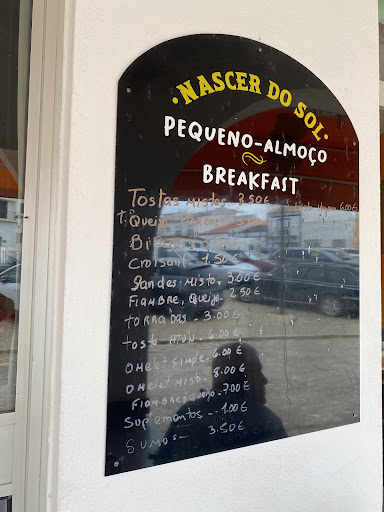 NASCER DO SOL
PEQUENO-ALMOÇO
~
BREAKFAST
TOSTAS MISTAS 3.50€ 6.00€
Queijo
CROISANT 1.50€
SANDES MISTO. 3.00€
FIAMBRE, Queijo - 2.50€
TORRADAS - 3.00€
TOSTA ATUM - 6.00€
OMELET SIMPLE - 6.00€
OMELET MISTO - 8.00€
FIAMBRE OU QUEIJO - 7.00€
Suplementos - 1.00€
SUMOS - 3.50€